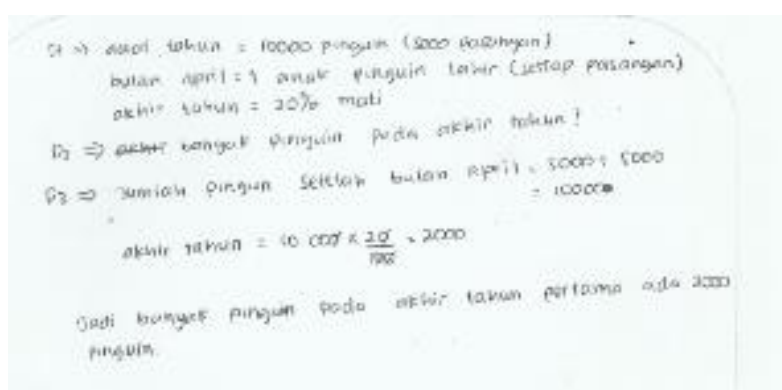 ⇒ awal tahun = 10000 pinguin (5000 pasangan)
bulan april = 1 anak pinguin lahir (setiap pasangan)
akhir tahun = 20% mati
⇒ banyak pinguin pada akhir tahun?
⇒ Jumlah pinguin setelah bulan april = 5000 + 5000
= 10000
akhir tahun = 10 000 x 20/100 = 2000
Jadi banyak pinguin pada akhir tahun pertama ada 2000
pinguin